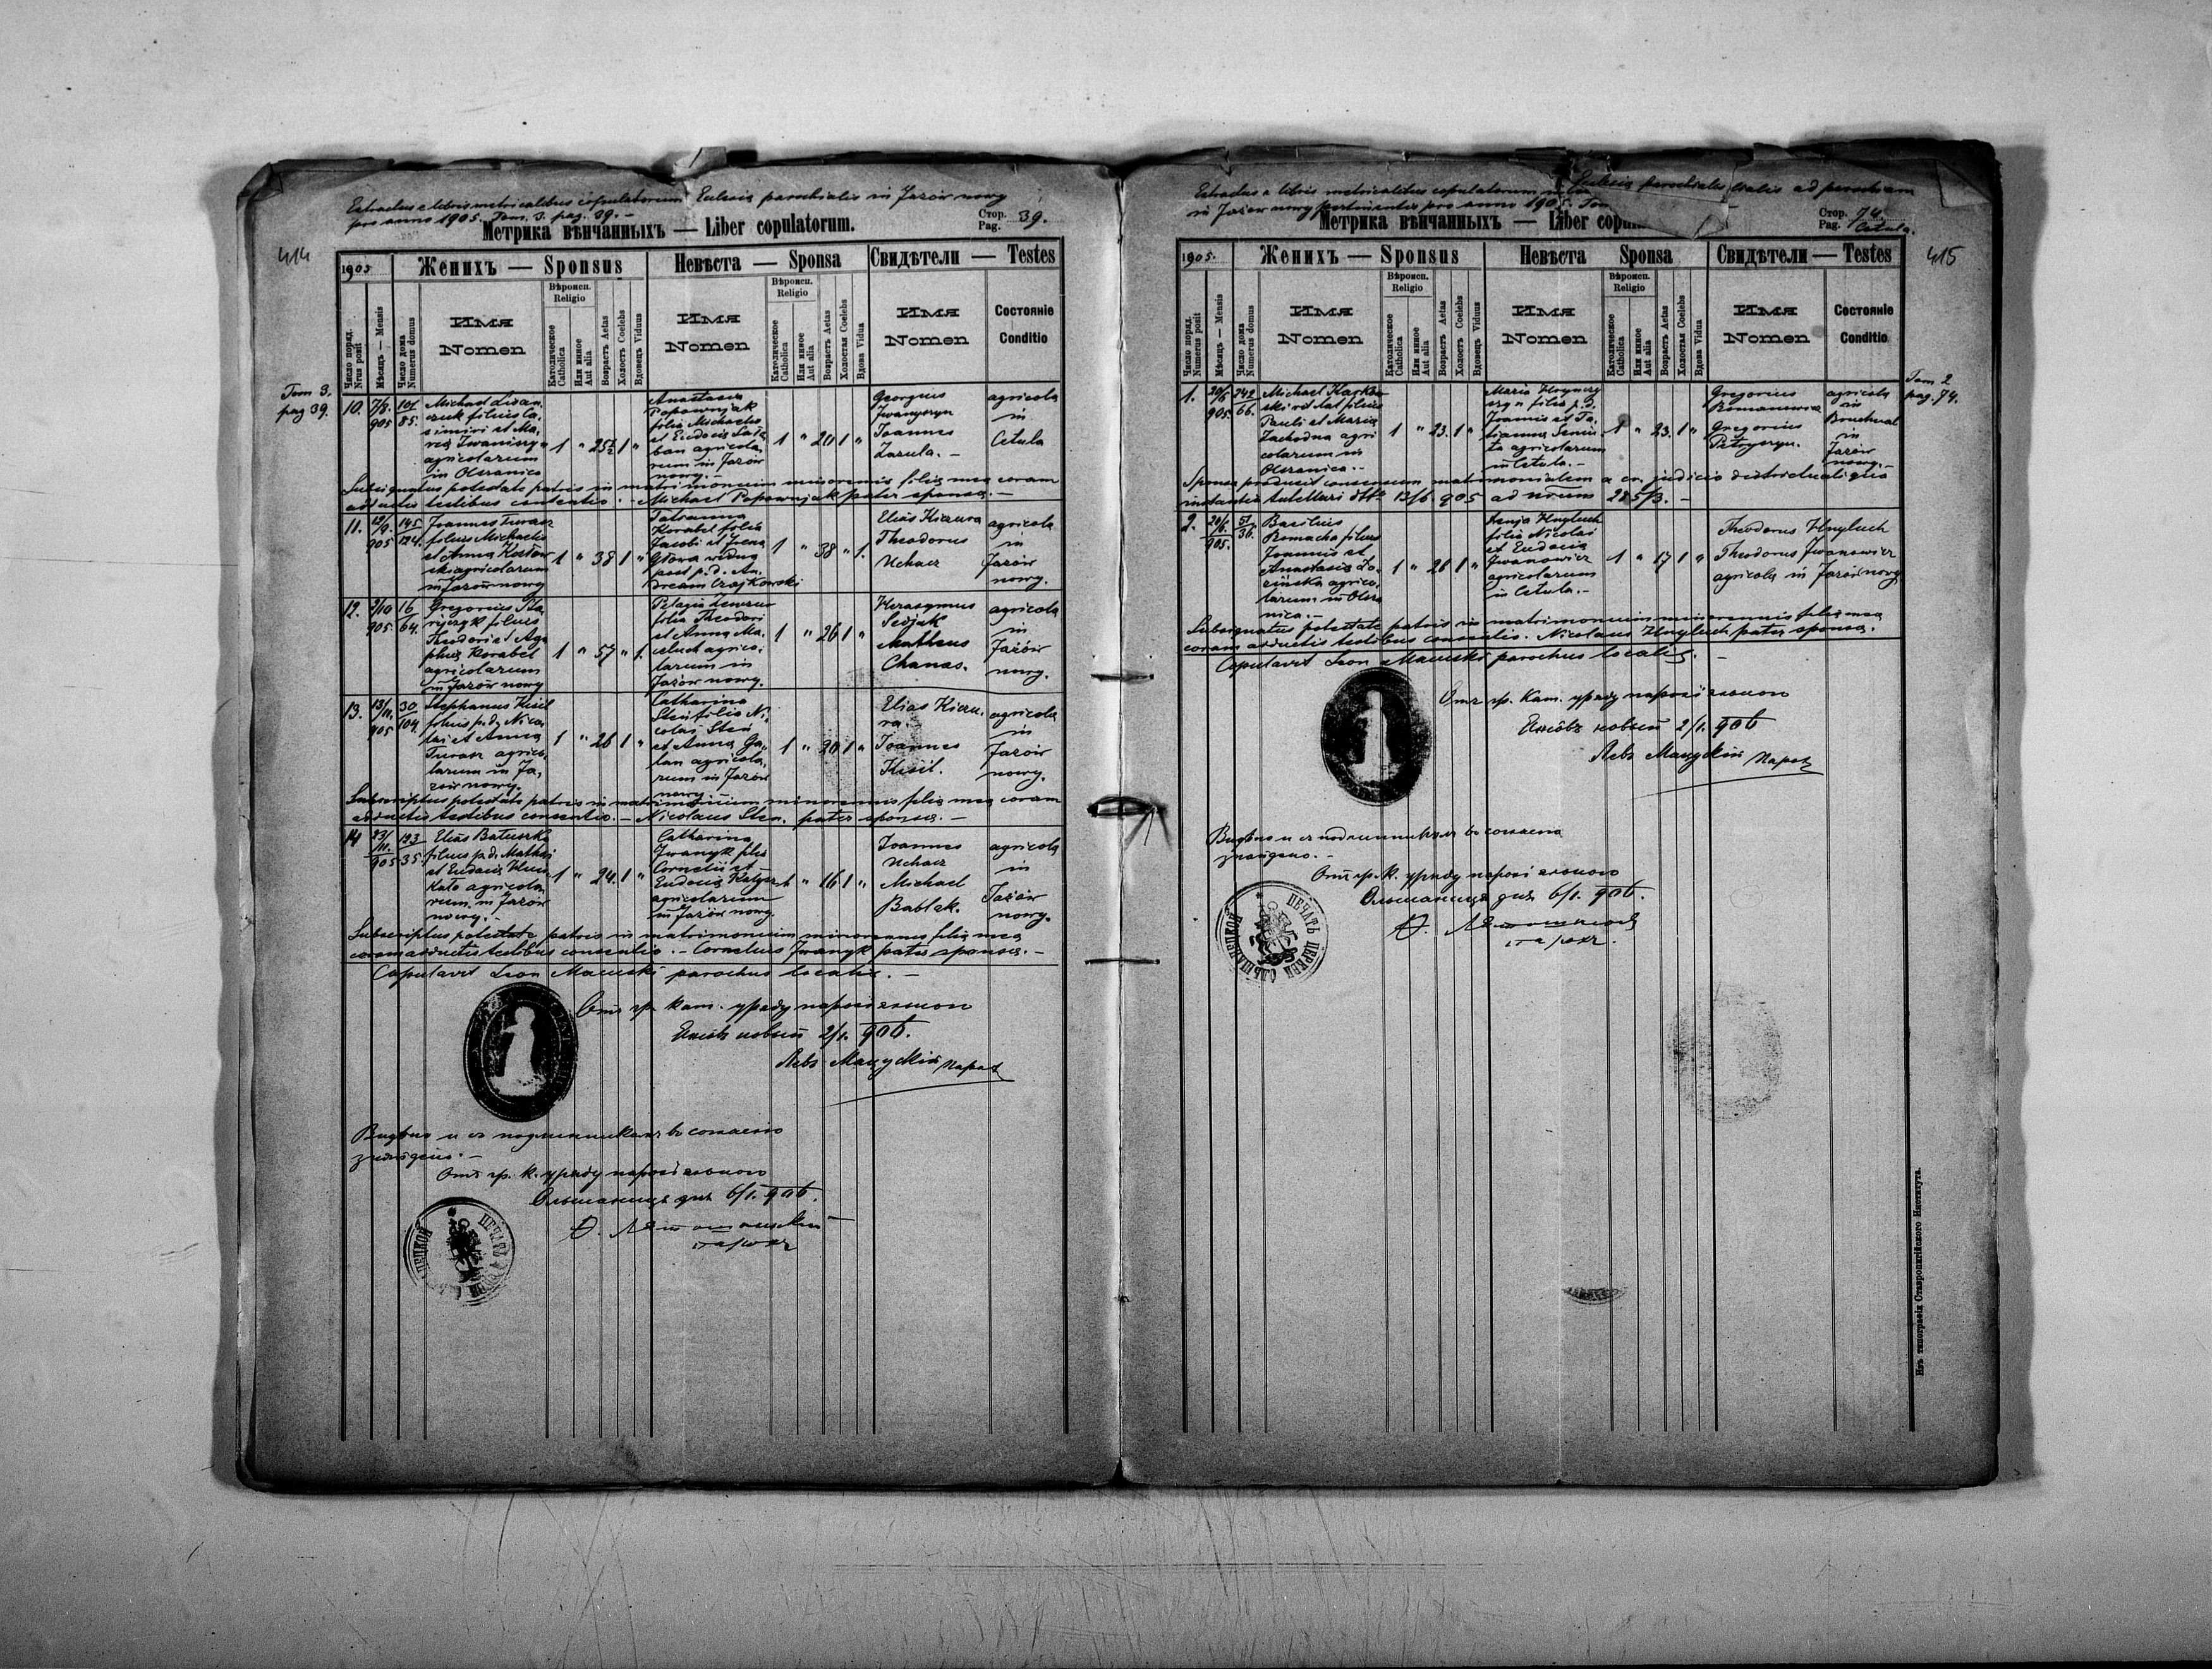 Extractus e libris metricalibus copulatorum Ecclesiæ parochialis in Jazów nowy
pro anno 1905. Tom. 3. pag. 39. -
Метрика вѣнчанныхъ — Liber copulatorum.
Стор. Pag. 39.
414
1905
Женихъ — Sponsus
Невѣста — Sponsa
Свидѣтели — Testes
Число поряд. Nrus posit
Мѣсяцъ — Mensis
Число дома Numerus domus
Имя Nomen
Вѣроисп. Religio
Католическое Catholica
Или иное Aut alia
Возрастъ Aetas
Холостъ Coelebs
Вдовецъ Viduus
Имя Nomen
Вѣроисп. Religio
Католическое Catholica
Или иное Aut alia
Возрастъ Aetas
Холостая Coelebs
Вдова Vidua
Имя Nomen
Состояніе Conditio
Tom 3.
pag 39.
10. 7/8. 905 101/85.
Michael
filius Ca-
simiri et Ma-
riæ
agricolarum
in Olszanica
1 " 25½ 1 "
Anastasia
Popownjak
filia Michaelis
et Eudociæ
ban agricola-
rum in Jazów
nowy. -
1 " 20 1 "
Georgius
Iwanyszyn
Joannes
Zazula. -
agricolæ
in
Cetula
Subsignatus potestate patris in matrimonium minorennis filiæ meæ coram
adductis testibus consentio. - Michael Popownjak pater sponsæ. -
11. 19/9. 905 145/124.
Joannes Turasz
filius Michaelis
et Anna
ski agricolarum
in Jazów nowy
1 " 38 1 "
Tatianna
Korabel filia
Jacobi et Irena
Głowa vidua
post p. d. An-
dream Czajkowski
1 " 38 " 1.
Elias Kiczura
Theodorus
Uchacz
agricolæ
in
Jazów
nowy.
12. 9/10 905. 16/64.
Gregorius
filius
Theodori et Aga-
phiæ Korabel
agricolarum
in Jazów nowy
1 " 57 " 1.
Pelagia
filia Theodori
et Anna Ma-
celuch agrico-
larum in
Jazów nowy.
1 " 26 1 "
Hierasymus
Sedjak
Mathæus
Chanas.
agricolæ
in
Jazów
nowy.
13. 13/11. 905 30/104.
Stephanus Kisil
filius p. d. Nico-
lai et Anna
Turasz agrico-
larum in Ja-
zów nowy.
1 " 26 1 "
Catharina
Sten filia Ni-
colai Sten
et Anna Ga-
lan agricola-
rum in Jazów
nowy. -
1 " 20 1 "
Elias Kiczu-
ra.
Joannes
Kisil.
agricolæ
in
Jazów
nowy.
Subscriptus potestate patris in matrimonium minorennis filiæ meæ coram
adductis testibus consentio. - Nicolaus Sten. pater sponsæ. -
14 23/11. 905 123/35.
Elias Batuszka
filius p. d. Mathæi
et Eudociæ
agricola-
rum in Jazów
nowy. -
1 " 24. 1 "
Catharina
Iwanyk filia
Cornelii et
Eudociæ
agricolarum
in Jazów nowy.
1 " 16 1 "
Joannes
Uchacz
Michael
Bablak.
agricolæ
in
Jazów
nowy.
Subscriptus potestate patris in matrimonium minorennis filiæ meæ
coram adductis testibus consentio. - Cornelius Iwanyk pater sponsæ. -
Copulavit Leon Macuski parochus localis. -
Отъ гр. кат. уряду парохіяльного
Язôвъ новый 2/1. 906.
Левъ Мацускій парох
Видѣно и съ подлинникомъ въ согласію
знайдено. -
Отъ гр. к. уряду парохіяльного
Ольшаница дня 6/1. 906.
парохъ
Extractus e libris metricalibus copulatorum Ecclesiæ parochialis ad parochiam
in Jazów nowy pertinentis pro anno 1905. Tom
Метрика вѣнчанныхъ — Liber
Стор. Pag. 74.
Cetula.
415
1905.
Женихъ — Sponsus
Невѣста Sponsa
Свидѣтели — Testes
Число поряд. Numerus posit
Мѣсяцъ — Mensis
Число дома Numerus domus
Имя Nomen
Вѣроисп. Religio
Католическое Catholica
Или иное Aut alia
Возрастъ Aetas
Холостъ Coelebs
Вдовецъ Viduus
Имя Nomen
Вѣроисп. Religio
Католическое Catholica
Или иное Aut alia
Возрастъ Aetas
Холостая Coelebs
Вдова Vidua
Имя Nomen
Состояніе Conditio
Tom 2
pag. 74.
1. 20/6 905. 242/66.
Michael
filius
Pauli et Mariæ
Zachodna agri-
colarum in
Olszanica. -
1 " 23. 1 "
Maria
filia p. d.
Joannis et Ta-
tianna
agricolarum
in Cetula. -
1 " 23. 1 "
Gregorius
Gregorius
Petryszyn.
agricolæ
in
Bruchnal
in
Jazów
nowy. -
Sponsa produxit consensum matrimonialem a cr. judicio districtuali qua
instantia tutellari dtto 13/6. 905 ad nrum 2257/3. -
2. 20/6. 905. 51/36.
Basilius
Romacha filius
Joannis et
Anastasiæ Lo-
zynska agrico-
larum in Olsza-
nica. -
1 " 26 1 "
Hnyluch
filia Nicolai
et Eudocia
Iwanowicz
agricolarum
in Cetula. -
1 " 17 1 "
Theodorus Hnyluch
Theodorus Iwanowicz
agricolæ in Jazów nowy
Subsignatus potestate patris in matrimonium minorennis filiæ meæ
coram adductis testibus consentio. Nicolaus Hnyluch pater sponsæ.
Copulavit Leon Macuski parochus localis. -
Отъ гр. кат. уряду парохіяльного
Язôвъ новый 2/1. 906
Левъ Мацускій парох
Видѣно и съ подлинникомъ въ согласію
знайдено. -
Отъ гр. к. уряду парохіяльного
Ольшаница дня 6/1. 906.
парохъ.
ПЕЧАТЬ ЦЕРКВИ
Изъ типографіи Ставропигійского Института.